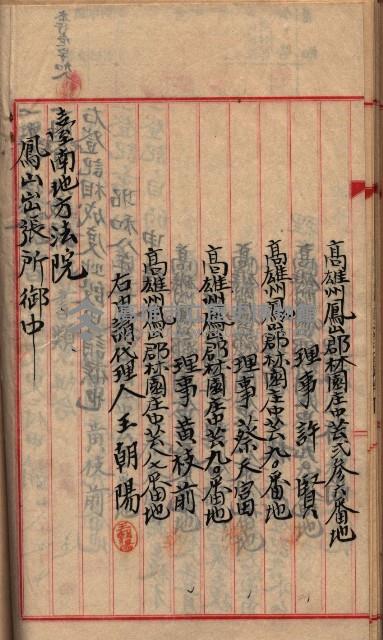 高雄州鳳山郡林園庄中芸弐參六番地
理事 許賢
高雄州鳳山郡林園庄中芸九〇番地
理事 蔡天富
高雄州鳳山郡林園庄中芸九〇番地
理事 黄枝前
高雄州鳳山郡林園庄中芸八七番地
右申請代理人 王朝陽
臺南地方法院
鳳山出張所御中